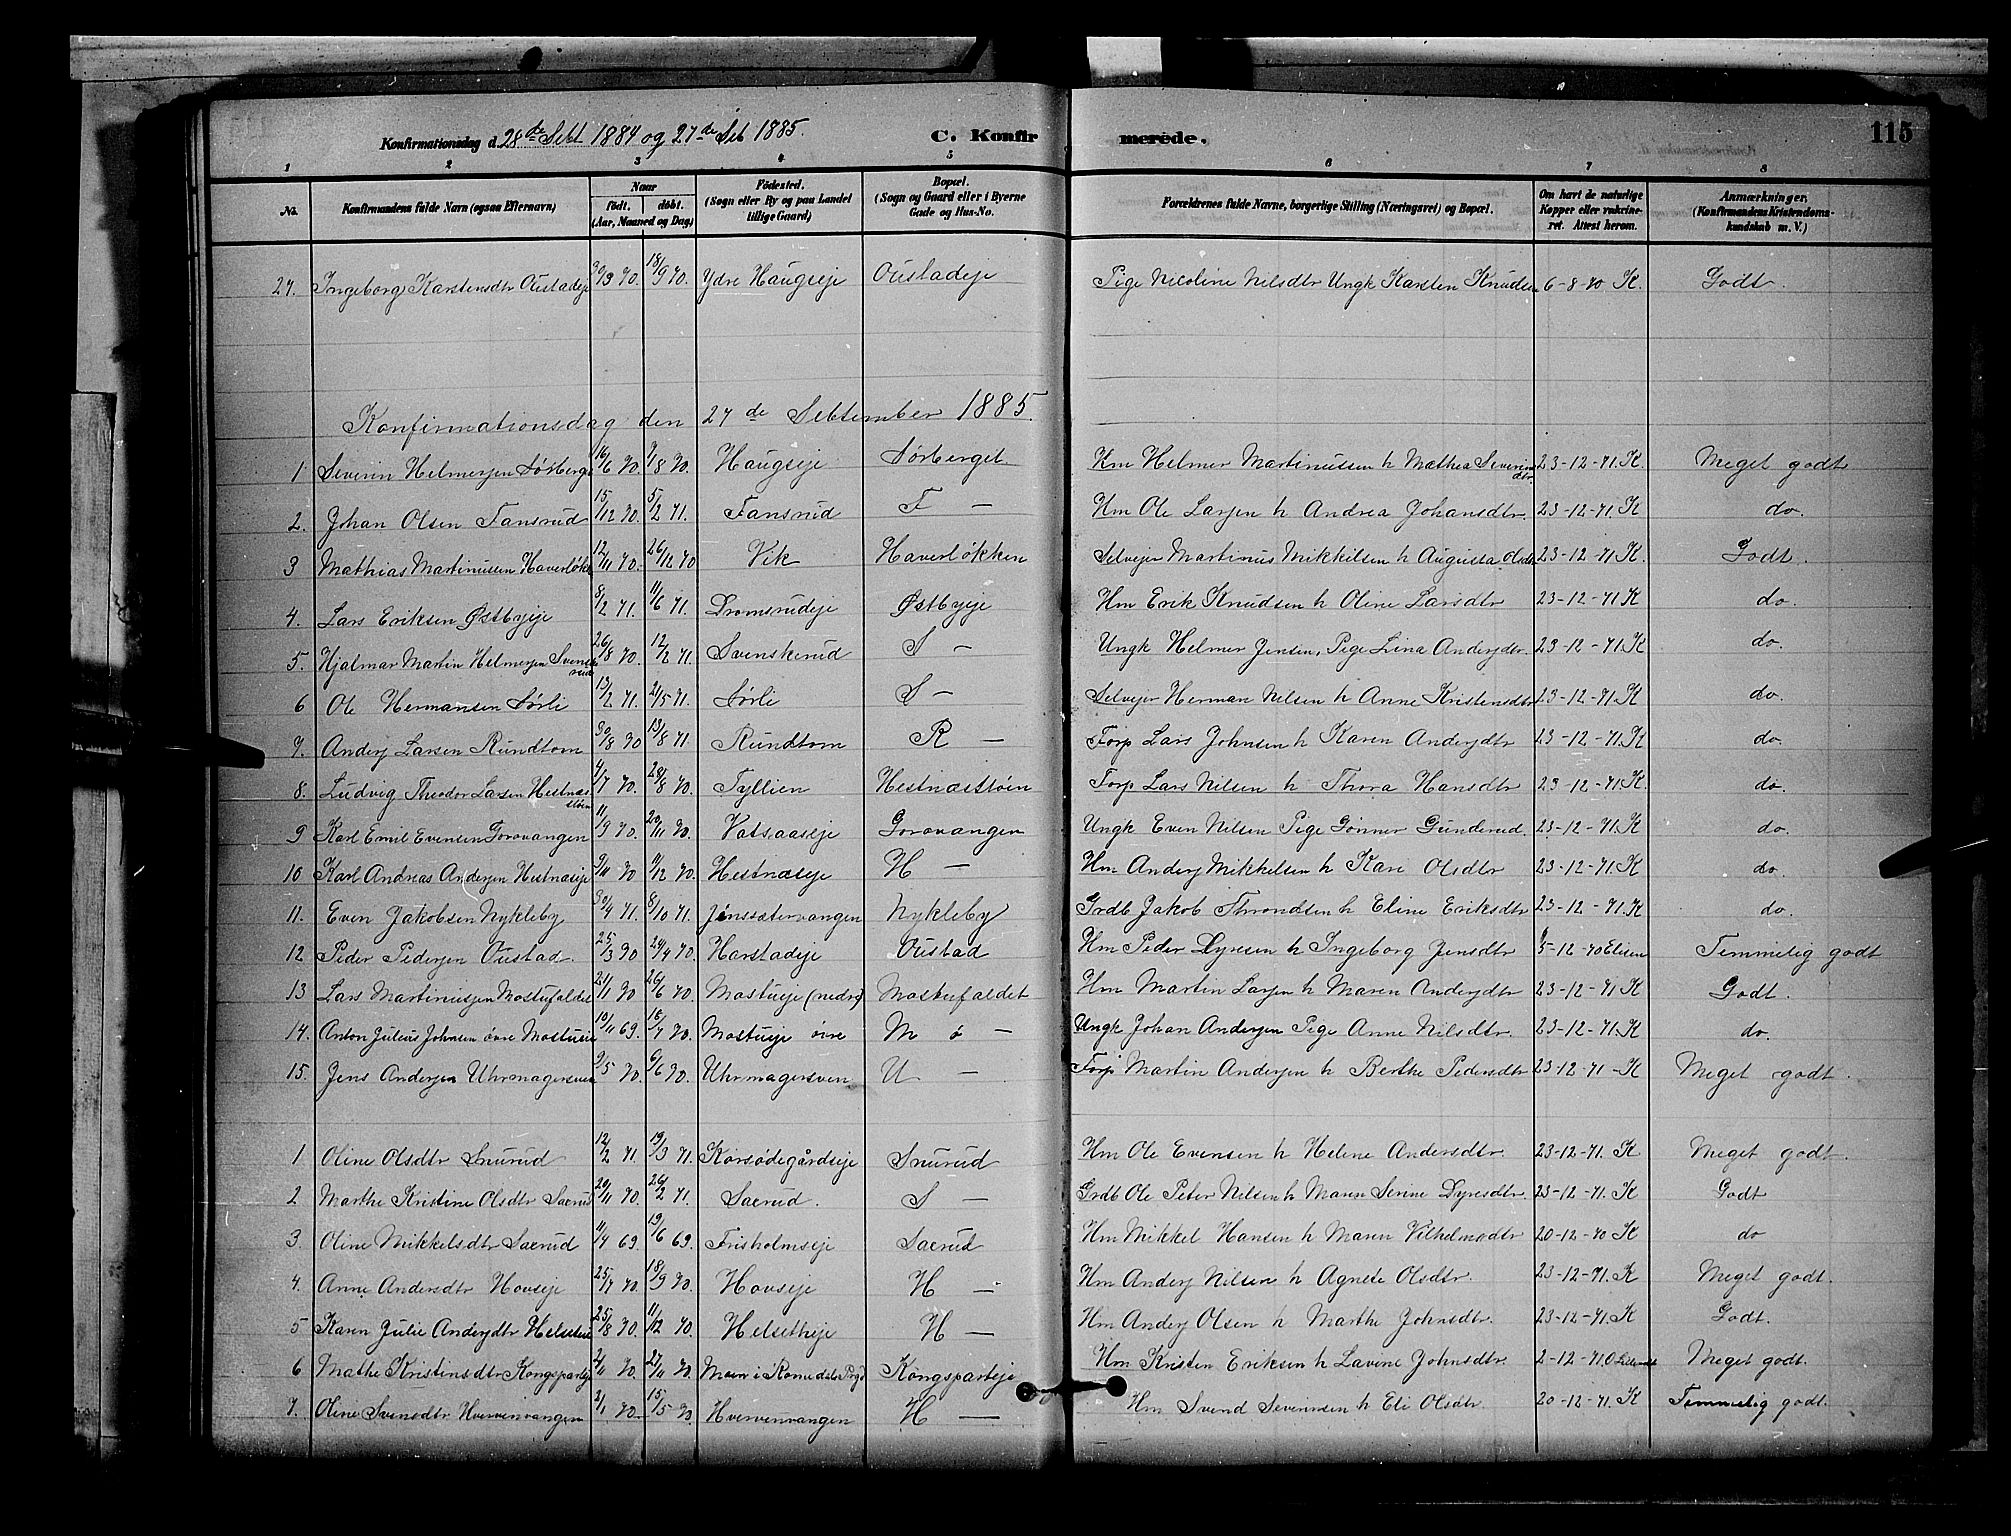 Konfirmationsdag d. 28de Sebt 1884 og 27de Seb 1885. C. Konfirmerede. 115
1 2 3 4 5 6 7 8
No. Konfirmandens fulde Navn (ogsaa Efternavn) Naar født. døbt. (Aar, Maaned og Dag) Fødested. (Sogn eller By og paa Landet tillige Gaard) Bopæl. (Sogn og Gaard eller i Byerne Gade og Hus-No. Forældrenes fulde Navne, borgerlige Stilling (Næringsvei) og Bopæl. Om havt de naturlige Kopper eller vakcineret. Attest herom. Anmærkninger. (Konfirmandens Kristendomskundskab m. V.)
27. Ingeborg Karstensdtr Oustadeje 30/3 70. 18/9 70. Ydre Haugseje Oustadeje Pige Nicoline Nilsdtr Ungk Karsten Knudsen 6-8-70 K. Godt.
Konfirmationsdag den 27de Sebtember 1885
1 Severin Helmersen Sørberge 16/6 70. 7/8 70. Haugseje Sørberget Hm Helmer Martinussen h Mathea Severinsdtr 23-12-71. K. Meget godt
2. Johan Olsen Fansrud 15/12 70. 5/2 71. Fansrud F — Hm Ole Larsen h Andrea Johansdtr. 23-12-71. K do.
3 Mathias Martinussen Haverløkk 12/11 70. 26/12 70 Vik Haverløkken Selvejer Martinus Mikkelsen h Augusta Olsdtr 23-12-71. K. Godt.
4. Lars Eriksen Østbyeje 8/2 71. 11/6 71. Dromsrudeje Østbyeje Hm Erik Knudsen h Oline Larsdtr 23-12-71. K do.
5. Hjalmar Martin Helmersen Svenskerud 26/8 70. 12/2 71. Svenskerud S — Ungk Helmer Jensen, Pige Lina Andersdtr. 23-12-71. K do.
6 Ole Hermansen Sørli 13/2 71. 21/5 71. Sørli S — Selvejer Herman Nilsen h Anne Kristensdtr 23-12-71. K do.
7. Anders Larsen Rundtom 30/8 70 13/8 71. Rundtom R — Torp Lars Johnsen h Karen Andersdtr 23-12-71. K do.
8. Ludvig Theodor Larsen Hestnæsstøen 4/7 70. 28/8 70. Tyllien Hestnæsstøen Torp Lars Nilsen h Thora Hansdtr 23-12-71. K. do.
9 Karl Emil Evensen Gorovangen 11/9 70. 20/11 70. Vatsaaseje Gorovangen Ungk Even Nilsen Pige Gønner Gunderud 23-12-71. K do.
10 Karl Andreas Andersen Hestnæseje 9/11 70 11/12 70. Hestnæseje H — Hm Anders Mikkelsen h Kari Olsdtr 23-12-71. K do.
11. Even Jakobsen Nykleby 30/4 71. 8/10 71. Jønsætervangen Nykleby Grdb Jakob Throndsen h Eline Eriksdtr 23-12-71. K do.
12 Peder Pedersen Oustad. 25/3 70 24/4 70. Harstadeje Oustad Hm Peder Dyresen h Ingeborg Jensdtr 5-12-70 Elisen Temmelig godt
13 Lars Martinussen Mostufaldet 21/1 70 26/6 70. Mostueje (nedre) Mostuefaldet Hm Martin Larsen h Maren Andersdtr 23-12-71 K Godt.
14. Anton Julius Johnsen øvre Mostueie 10/11 69. 16/1 70. Mostueje øvre M ø — Ungk Johan Andersen Pige Anne Nilsdtr. 23-12-71. K do.
15. Jens Andersen Uhrmagersven 9/5 70. 6/6 70. Uhrmagersven U — Torp Martin Andersen h Berthe Pedersdtr 23-12-71-K Meget godt.
1 Oline Olsdtr Snurud 12/2 71. 19/3 71. Korsødegårdseje Snurud Hm Ole Evensen h Helene Andersdtr 23-12-71. K Meget godt.
2 Marthe Kristine Olsdtr Saerud 20/11 70. 26/2 71. Saerud. S — Grdb Ole Peter Nilsen h Maren Serine Dyresdtr 23-12-71. K Godt
3. Oline Mikkelsdtr Saerud 11/4 69. 19/6 69. Frisholmseje Saerud Hm Mikkel Hansen h Maren Vilhelmsdtr 20-12-70 K do
4. Anne Andersdtr Hovseje 25/7 70. 18/9 70. Hovseje H — Hm Anders Nilsen h Agnete Olsdtr. 23-12-71. K Meget godt.
5 Karen Julie Andersdtr Helseteie 25/8 70. 11/12 70. Helsetheje H — Hm Anders Olsen h Marthe Johnsdtr. 23-12-71. K Godt.
6 Mathe Kristinsdtr Kongsparteje 2/11 70. 27/11 70. i Romedals Prgd Kongsparteje Hm Kristen Eriksen h Lavine Johnsdtr. 2-12-71. Meget godt.
7. Oline Svensdtr Hvervenvangen 2/1 70- 15/5 70. Hvervenvangen H — Hm Svend Severinsen h Eli Olsdtr. 20-12-71. K Temmelig godt.